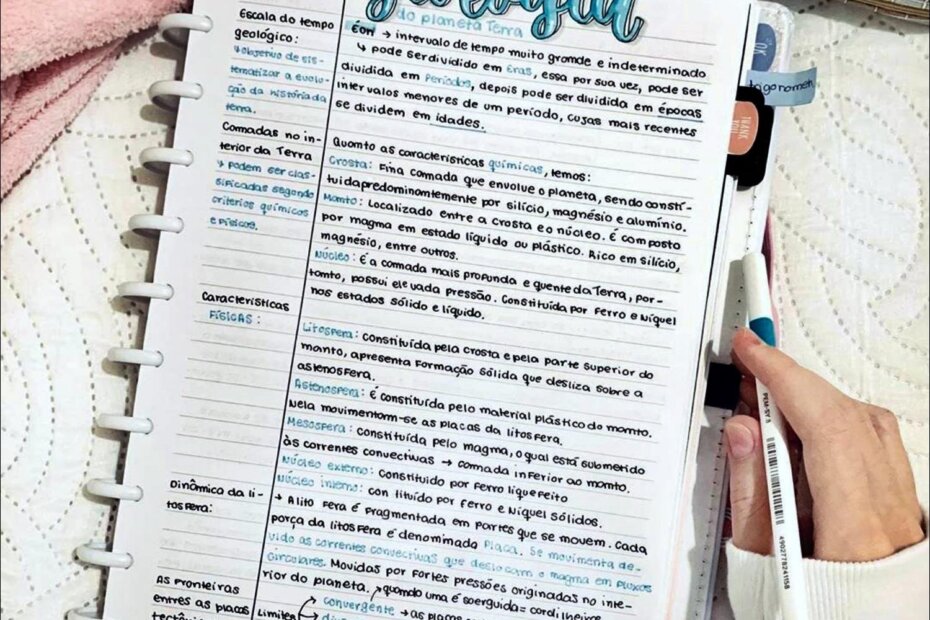 Geologia
do planeta Terra
Escala do tempo
geológico:
↳ objetivo de sis-
tematizar a evolu-
ção da história da
terra.
Éon → intervalo de tempo muito grande e indeterminado
↳ pode ser dividido em Eras, essa por sua vez, pode ser
dividida em Períodos, depois pode ser dividida em épocas
intervalos menores de um período, cujas mais recentes
se dividem em idades.
Camadas no in-
terior da Terra
↳ Podem ser clas-
sificadas segundo
critérios químicos
e físicos.
Quanto as características químicas, temos:
Crosta: Fina camada que envolve o planeta, sendo consti-
tuida predominantemente por silício, magnésio e alumínio.
Manto: Localizado entre a crosta e o núcleo. É composto
por magma em estado líquido ou plástico. Rico em silício,
magnésio, entre outros.
Núcleo: É a camada mais profunda e quente da Terra, por-
tanto, possui elevada pressão. Constituída por Ferro e Níquel
nos estados sólido e líquido.
Características
FÍSICAS:
Litosfera: Constituída pela crosta e pela parte superior do
manto, apresenta formação sólida que desliza sobre a
astenosfera.
Astenosfera: É constituída pelo material plástico do manto.
Nela movimentam-se as placas da litosfera.
Mesosfera: Constituída pelo magma, o qual está submetido
às correntes convectivas → camada inferior ao manto.
Núcleo externo: Constituído por Ferro liquefeito
Núcleo interno: con tituído por Ferro e Níquel sólidos.
Dinâmica da li-
tosfera:
→ A lito fera é fragmentada em partes que se movem. Cada
porça da litosfera é denominada Placa. Se movimenta de-
vido as correntes convectivas que deslocam o magma em fluxos
circulares. Movidas por fortes pressões originadas no inte-
rior do planeta. ↗ quando uma é soerguida = cordilheira
As fronteiras
entres as placas
tectôni
Limites
convergente → as placas
THANK YOU
OK
PEM-SY
4902778241158